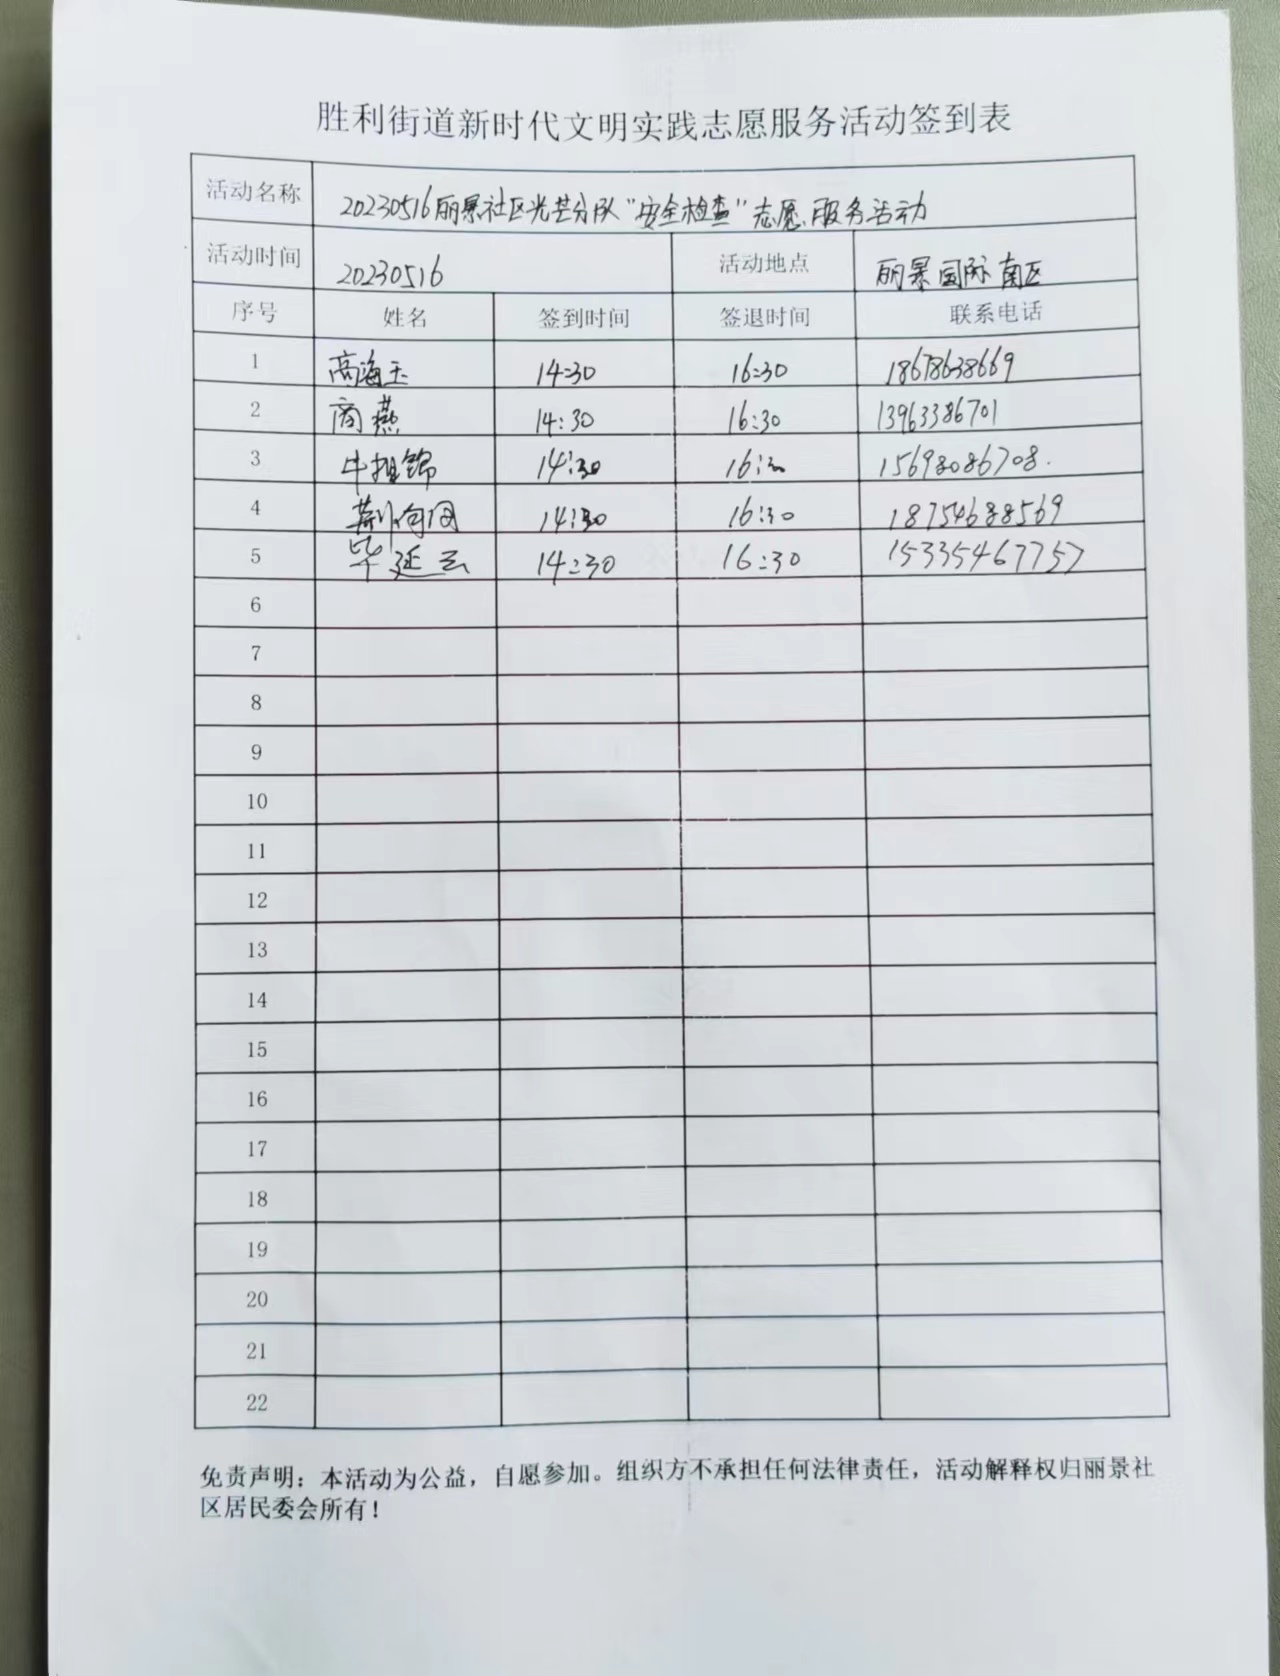 胜利街道新时代文明实践志愿服务活动签到表
活动名称 20230516丽景社区光芒分队“安全检查”志愿服务活动
活动时间 20230516 活动地点 丽景国际南区
序号 姓名 签到时间 签退时间 联系电话
1 高海玉 14:30 16:30 18678638669
2 商燕 14:30 16:30 13963386701
3 牛担锦 14:30 16:30 15698086708.
4 14:30 16:30 18754688569
5 毕延云 14:30 16:30 15335467757
6
7
8
9
10
11
12
13
14
15
16
17
18
19
20
21
22
免责声明：本活动为公益，自愿参加。组织方不承担任何法律责任，活动解释权归丽景社
区居民委会所有！